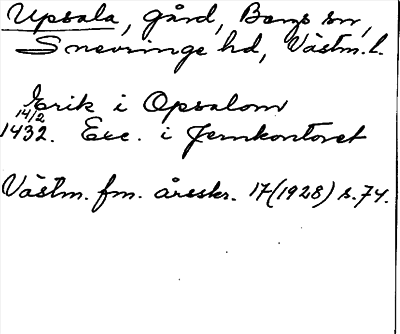 Upsala, gård, Bergs sn,
Snevringe hd, Västm. l.
Erik i Opsalom
14/2
1432. Exc. i Jernkontoret
Västm. fm. årsskr. 17(1928) s. 74.